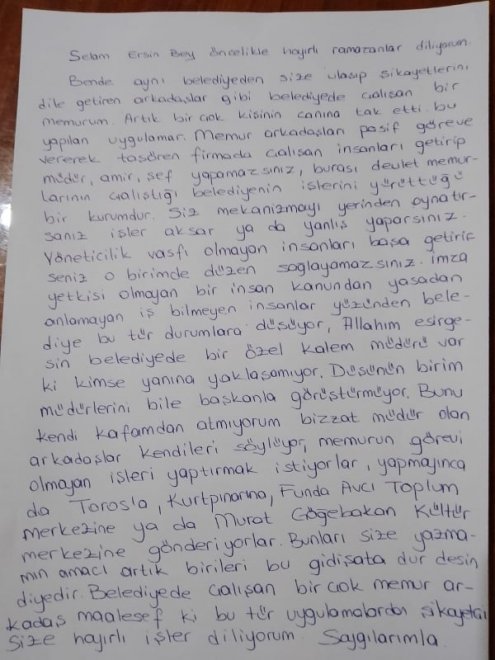 Selam Ersin Bey öncelikle hayırlı ramazanlar diliyorum
Bende aynı belediyeden size ulaşıp şikayetlerini
dile getiren arkadaşlar gibi belediyede çalışan bir
memurum. Artık bir çok kişinin canına tak etti bu
yapılan uygulamar. Memur arkadaşları pasif göreve
vererek taşören firmada çalışan insanları getirip
müdür, amir, şef yapamazsınız, burası devlet memur-
larının çalıştığı belediyenin işlerini yürettüğü
bir kurumdur. Siz mekanizmayı yerinden oynatır-
sanız işler aksar ya da yanlış yaparsınız.
Yöneticilik vasfı olmayan insanları başa getirir
seniz o birimde düzen sağlayamazsınız. imza
yetkisi olmayan bir insan kanundan yasadan
anlamayan iş bilmeyen insanlar yüzünden bele-
diye bu tür durumlara düşüyor, Allahım esirge-
sin belediyede bir özel kalem müdürü var
ki kimse yanına yaklaşamıyor. Düşünün birim
müdürlerini bile başkanla görüştürmüyor. Bunu
kendi kafamdan atmıyorum bizzat müdür olan
arkadaşlar kendileri söylüyor, memurun görevi
olmayan işleri yaptırmak istiyorlar, yapmayınca
da Toros'a, Kurtpınarına, Funda Avcı Toplum
merkezine ya da Murat Göğebakan Kültür
merkezine gönderiyorlar. Bunları size yazma-
mın amacı artık birileri bu gidişata dur desin
diyedir. Belediyede çalışan bir çok memur ar-
kadaş maalesef ki bu tür uygulamalardan şikayetçi
Size hayırlı işler diliyorum. Saygılarımla.